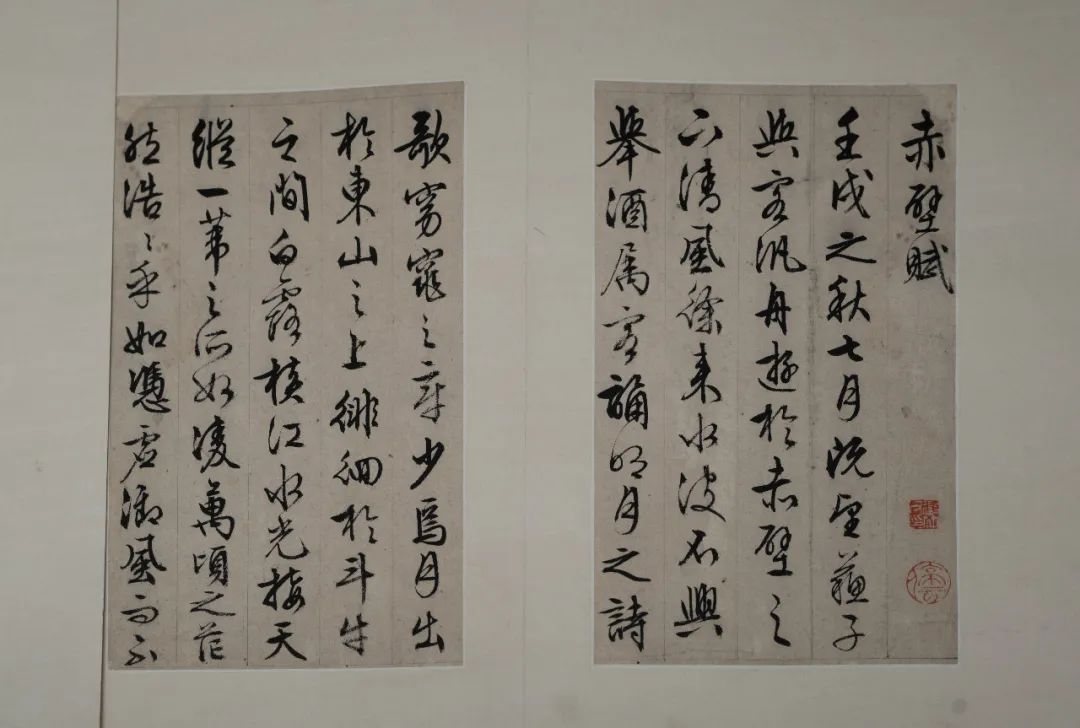 赤壁賦
壬戌之秋七月既望蘇子
與客汎舟遊於赤壁之
下清風徐來水波不興
舉酒属客誦明月之詩
歌窈窕之章少焉月出
於東山之上徘徊於斗牛
之間白露橫江水光接天
縱一葦之所如凌萬頃之茫
然浩〻乎如憑虛御風而不